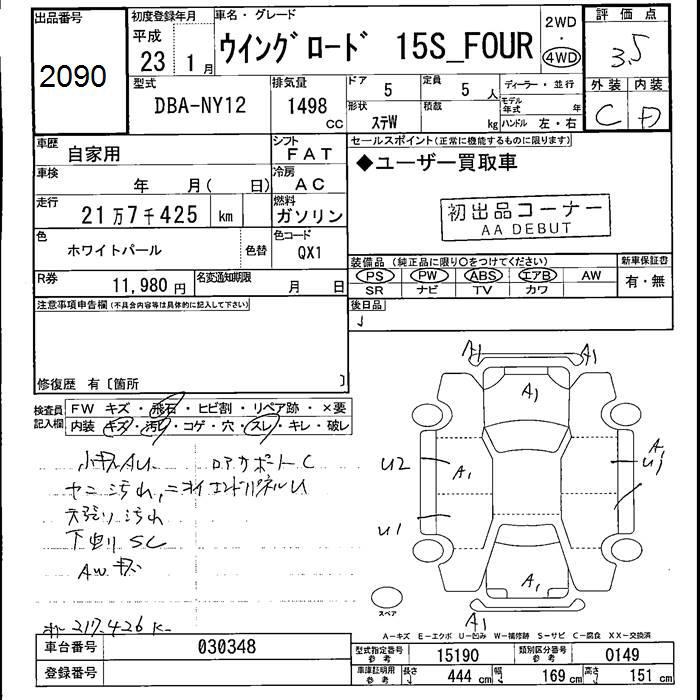 出品番号
2090
初度登録年月
平成
23 1 月
車名・グレード
ウイングロード 15S_FOUR
2WD
・
4WD
評価点
3.5
外装 内装
C D
型式
DBA-NY12
排気量
1498
CC
ドア
5
定員
5 人
形状
ステW
積載
kg
ディーラー・並行
モデル年式 年
ハンドル 左・右
車歴
自家用
シフト
FAT
車検
年 月( 日)
冷房
AC
走行
21万7千425 km
燃料
ガソリン
色
ホワイトパール
色替
色コード
QX1
R券
11,980 円
名変通知期限
月 日
セールスポイント(正常に機能するものに限ります)
◆ユーザー買取車
初出品コーナー
AA DEBUT
装備品 (純正品に限り○をつけてください)
新車保証書
PS PW ABS エアB AW
SR ナビ TV カワ
有・無
後日品
注意事項申告欄(不具合内容等は具体的に記入して下さい)
修復歴 有〔箇所 〕
検査員記入欄
FW キズ・飛石・ヒビ割・リペア跡・×要
内装 キズ・汚れ・コゲ・穴・スレ・キレ・破レ
小キズAU
ロアサポートC
ヤニ汚れ,ニオイ
エンドパネルU
天張り汚れ
下廻りSC
AWキズ
217,426K
A1 A1
A1
U2
A1
A1
U1
U1
A1
A1
スペア
A-キズ E-エクボ U-凹み W-補修跡 S-サビ C-腐食 XX-交換済
車台番号
030348
登録番号
型式指定番号
参考
15190
類別区分番号
参考
0149
車庫証明用
参考
長さ
444 cm
幅
169 cm
高さ
151 cm